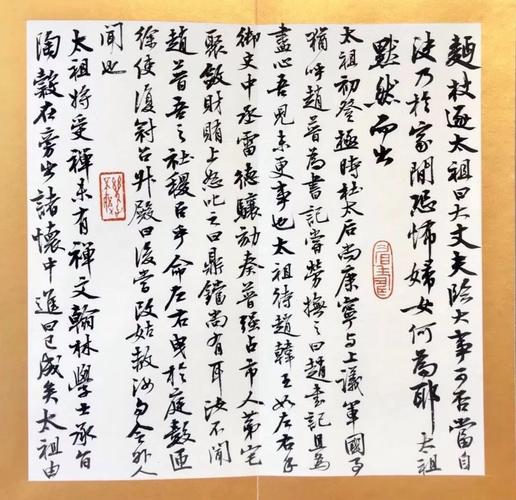 麵杖逐太祖曰大丈夫臨大事可否當自
決乃於家間恐怖婦女何為耶太祖
默然而出
太祖初登極時杜太后尚康寧与上議軍國事
猶呼趙普為書記嘗勞撫之曰趙書記且為
盡心吾兒未更事也太祖待趙韓王如左右手
御史中丞雷德驤劾奏普强占市人第宅
聚斂財賄上怒叱之曰鼎鐺尚有耳汝不聞
趙普吾之社稷臣乎命左右曳於庭數匝
徐使復冠召升殿曰後當改姑赦汝勿令外人
聞也
太祖將受禪未有禪文翰林學士承旨
陶穀在旁出諸懷中進曰已成矣太祖由